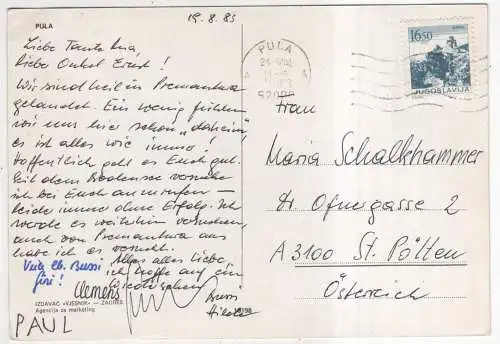 PULA
19.8.83
Liebe Tante Mia,
lieber Onkel Ernst!
Wir sind heil in Premantura
gelandet. Ein wenig fühlen
wir uns hier schon „daheim",
es ist alles wie immer!
Hoffentlich geht es Euch gut.
Seit dem Bodensee versuche
ich bei Euch anzurufen –
leider immer ohne Erfolg. Ich
werde es weiterhin versuchen,
auch von Premantura aus
habe ich es versucht.
Alles alles Liebe
ich hoffe auf ein
Wiedersehen
Viele lb. Bussi
Clemens
Bussi
IZDAVAČ »VJESNIK« — ZAGREB
Agencija za marketing
PAUL
PULA
52000
16,50
JUGOSLAVIJA
Frau
Maria Schalkhammer
Dr. Ofnergasse 2
A3100 St. Pölten
Österreich